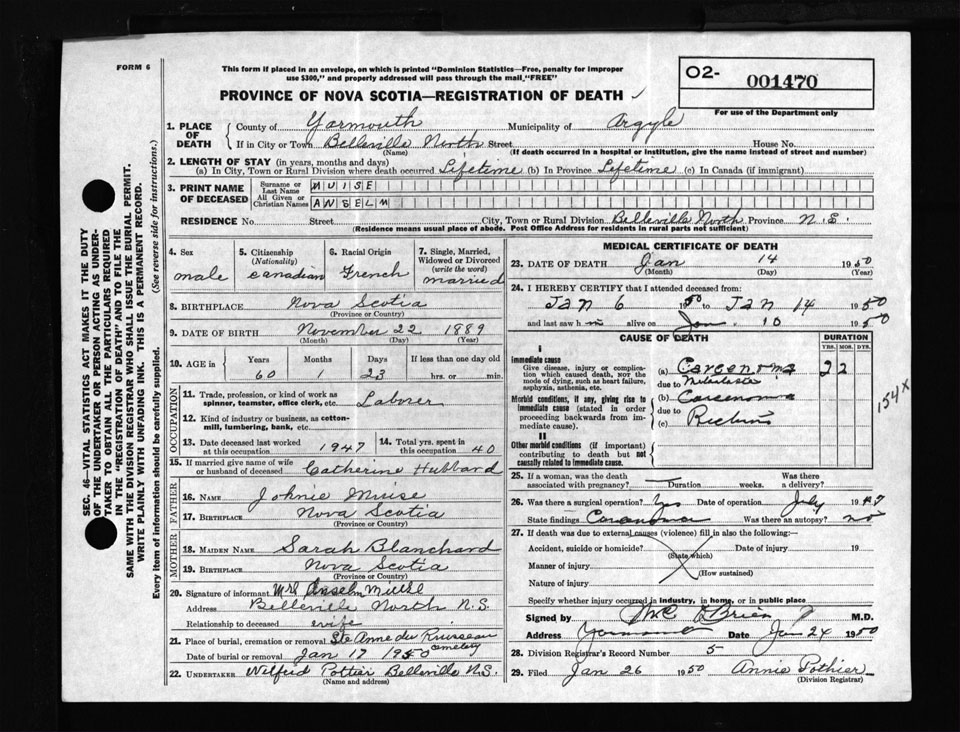 FORM 6
This form if placed in an envelope, on which is printed "Dominion Statistics—Free, penalty for improper
use $300," and properly addressed will pass through the mail "FREE"
PROVINCE OF NOVA SCOTIA—REGISTRATION OF DEATH ✓
02-
001470
For use of the Department only
1. PLACE OF DEATH County of Yarmouth Municipality of Argyle
If in City or Town Belleville North Street House No.
(Name) (If death occurred in a hospital or institution, give the name instead of street and number)
2. LENGTH OF STAY (in years, months and days)
(a) In City, Town or Rural Division where death occurred Lifetime (b) In Province Lifetime (c) In Canada (if immigrant)
3. PRINT NAME OF DECEASED Surname or Last Name MUISE
All Given or Christian Names ANSELM
RESIDENCE No. Street City, Town or Rural Division Belleville North Province N.S.
(Residence means usual place of abode. Post Office Address for residents in rural parts not sufficient)
4. Sex male
5. Citizenship (Nationality) Canadian
6. Racial Origin French
7. Single, Married, Widowed or Divorced (write the word) married
8. BIRTHPLACE Nova Scotia
(Province or Country)
9. DATE OF BIRTH November 22 1889
(Month) (Day) (Year)
10. AGE in Years Months Days If less than one day old
60 1 23 hrs. or min.
OCCUPATION
11. Trade, profession, or kind of work as spinner, teamster, office clerk, etc. Laborer
12. Kind of industry or business, as cotton-mill, lumbering, bank, etc.
13. Date deceased last worked at this occupation 1947
14. Total yrs. spent in this occupation 40
15. If married give name of wife or husband of deceased Catherine Hubbard
FATHER
16. NAME Johnie Muise
17. BIRTHPLACE Nova Scotia
(Province or Country)
MOTHER
18. MAIDEN NAME Sarah Blanchard
19. BIRTHPLACE Nova Scotia
(Province or Country)
20. Signature of informant Mrs Anselm Muise
Address Belleville North N.S.
Relationship to deceased wife
21. Place of burial, cremation or removal Ste Anne du Ruisseau cemetery
Date of burial or removal Jan 17 1950
22. UNDERTAKER Wilfred Pottier Belleville N.S.
(Name and address)
MEDICAL CERTIFICATE OF DEATH
23. DATE OF DEATH Jan 14 1950
(Month) (Day) (Year)
24. I HEREBY CERTIFY that I attended deceased from:
Jan 6 1950 to Jan 14 1950
and last saw h m alive on Jan. 10 1950
CAUSE OF DEATH
DURATION
YRS. MOS. DYS.
I
Immediate cause
Give disease, injury or complication which caused death, NOT the mode of dying, such as heart failure, asphyxia, asthenia, etc.
(a) Carcenoma 2 2
due to
Morbid conditions, if any, giving rise to immediate cause (stated in order proceeding backwards from immediate cause).
(b) Carcenoma
due to
(c) Rectum
II
Other morbid conditions (if important) contributing to death but not causally related to immediate cause.
154X
25. If a woman, was the death associated with pregnancy? Duration weeks. Was there a delivery?
26. Was there a surgical operation? Yes Date of operation July 1947
State findings Carcenoma Was there an autopsy? no
27. If death was due to external causes (violence) fill in also the following:
Accident, suicide or homicide? Date of injury 19
(State which)
Manner of injury
(How sustained)
Nature of injury
Specify whether injury occurred in industry, in home, or in public place
Signed by O'Brien M.D.
Address Yarmouth Date Jan 24 1950
28. Division Registrar's Record Number 5
29. Filed Jan 26 1950 Annie Pothier
(Division Registrar)
SEC. 46—VITAL STATISTICS ACT MAKES IT THE DUTY
OF THE UNDERTAKER OR PERSON ACTING AS UNDER-
TAKER TO OBTAIN ALL THE PARTICULARS REQUIRED
IN THE "REGISTRATION OF DEATH" AND TO FILE THE
SAME WITH THE DIVISION REGISTRAR WHO SHALL ISSUE THE BURIAL PERMIT.
WRITE PLAINLY WITH UNFADING INK. THIS IS A PERMANENT RECORD.
Every item of information should be carefully supplied. (See reverse side for instructions.)